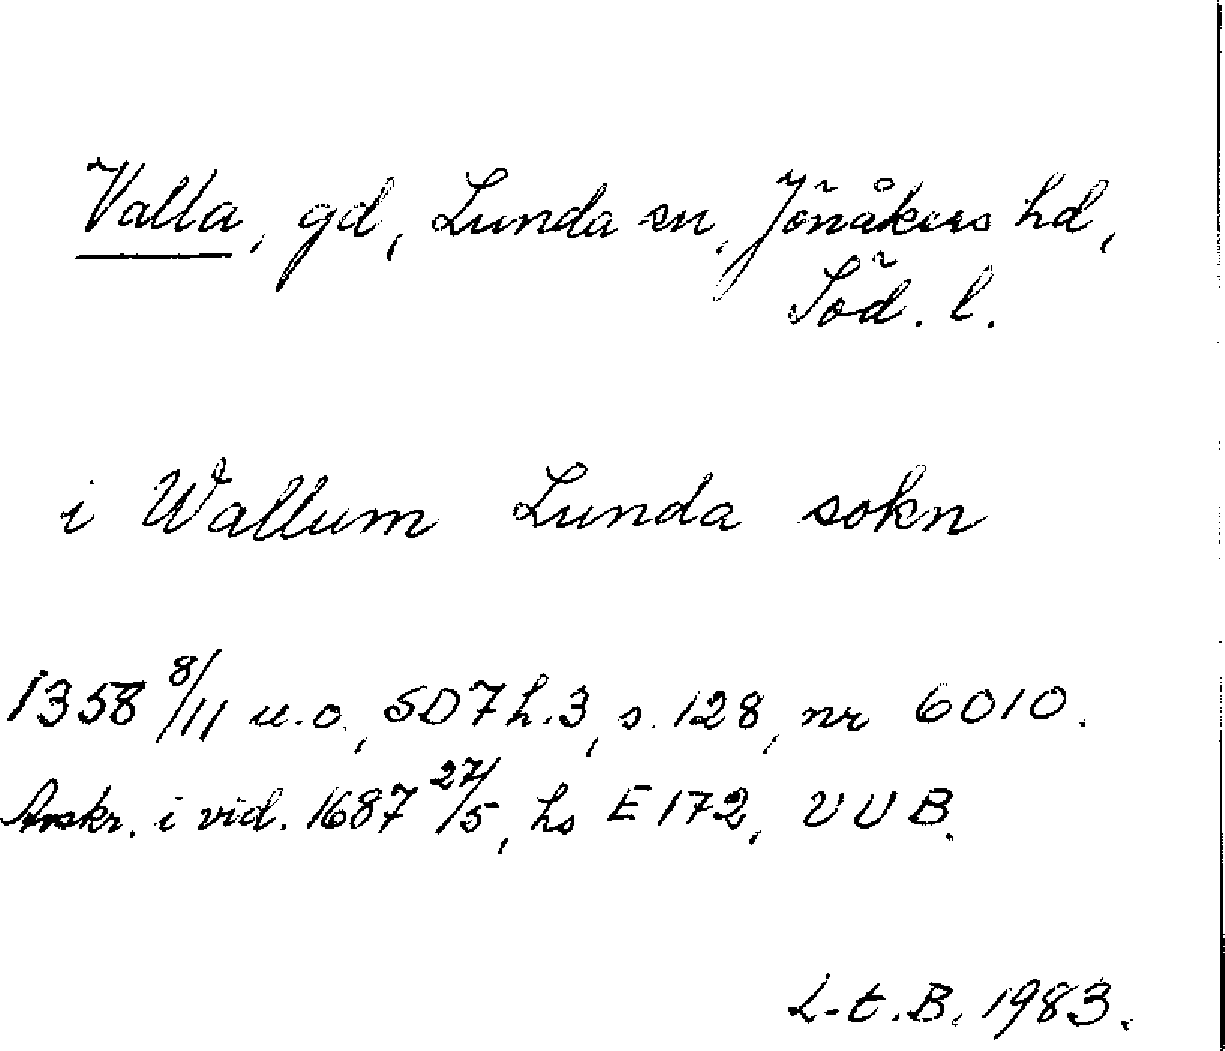 Valla, gd, Lunda sn, Jönåkers hd,
Söd. l.
i Wallum Lunda sokn
1358 8/11 u.o., SD 7 h.3, s. 128, nr 6010.
Avskr. i vid. 1687 27/5, hs E 172, UUB.
L-t. B. 1983.